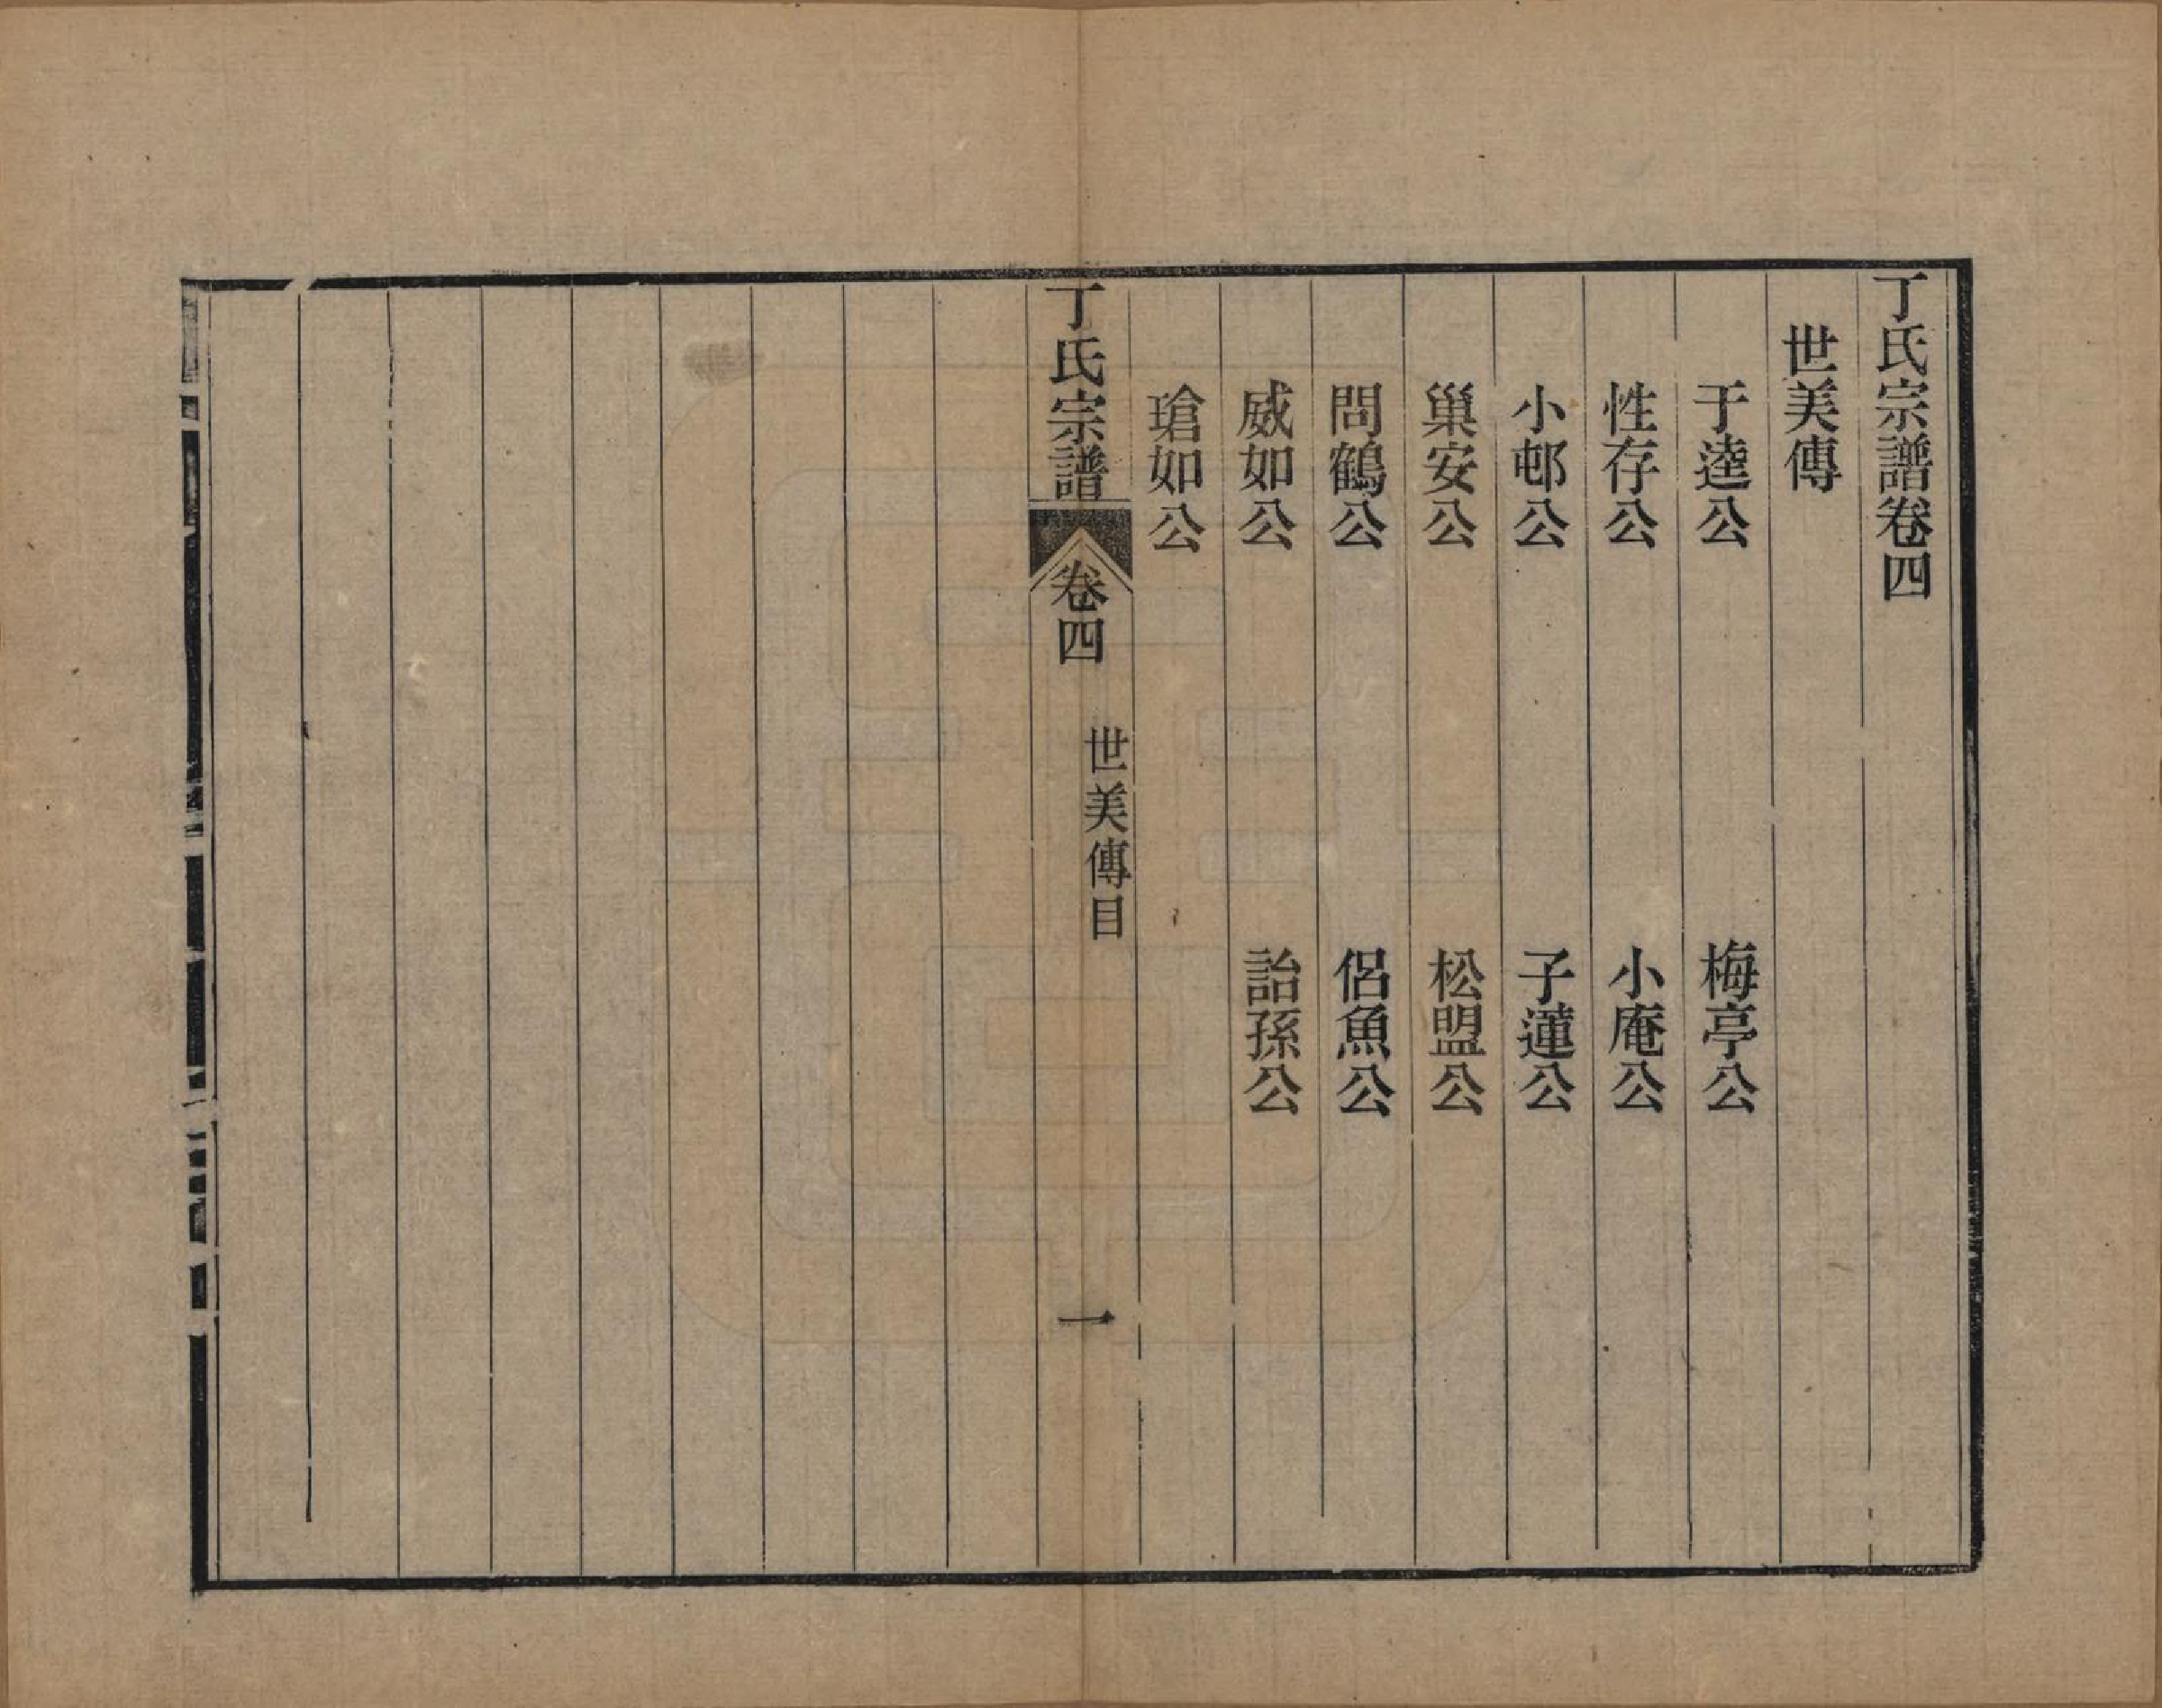 丁氏宗譜卷四
世美傳
于逵公 梅亭公
性存公 小庵公
小邨公 子蓮公
巢安公 松盟公
問鶴公 侶魚公
威如公 詒孫公
瑲如公
丁氏宗譜 卷四 世美傳目 一